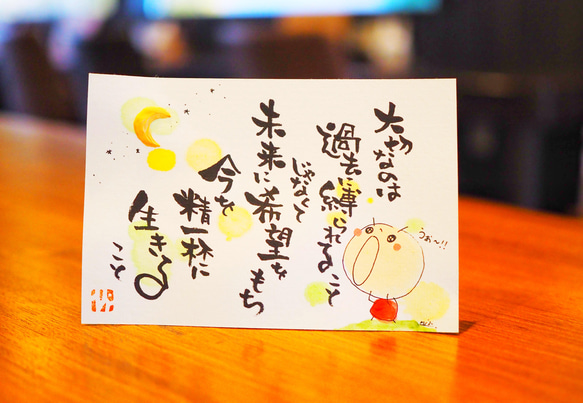 大切なのは
過去に縛られること
じゃなくて
未来に希望をもち
今を
精一杯に
生きる
こと
うぉ〜!!